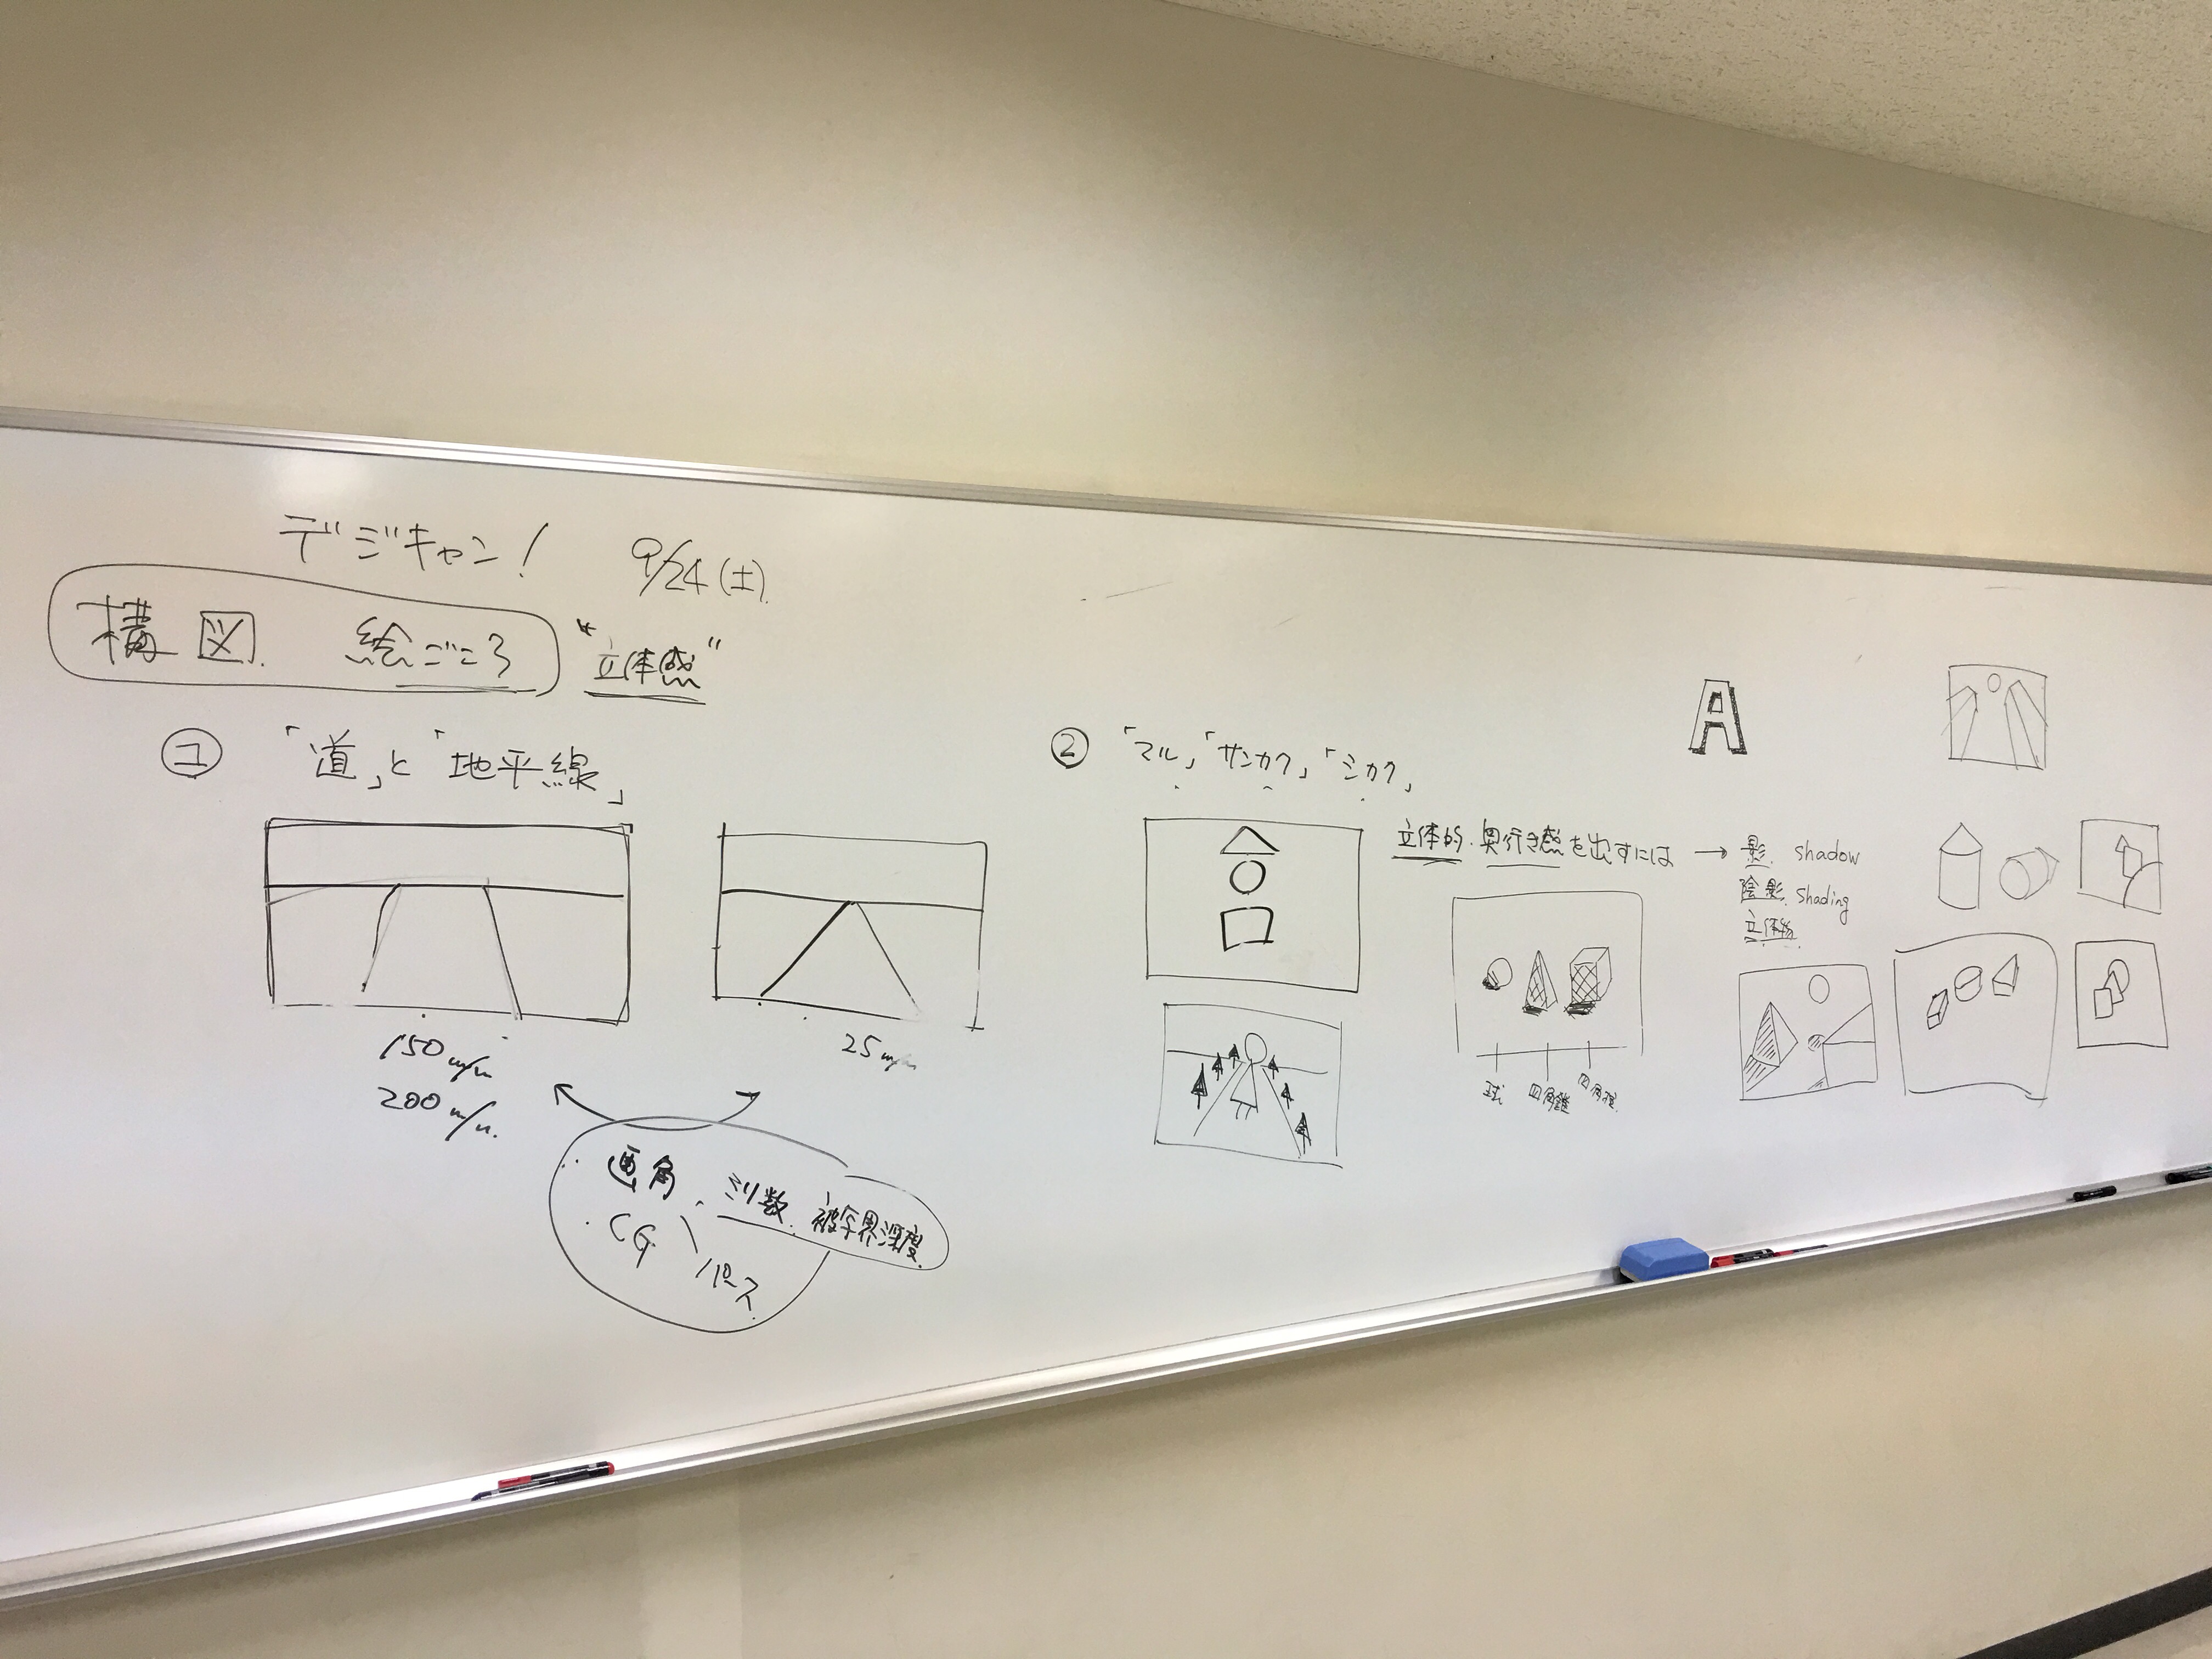 デジキャン! 9/24(土)
構図 絵ごころ "立体感"
① 「道」と「地平線」
150m/m
200m/m
25m/m
画角、ミリ数、被写界深度
CG パース
② 「マル」「サンカク」「シカク」
立体的、奥行き感を出すには → 影 shadow
陰影 shading
立体物
球 四角錐
A